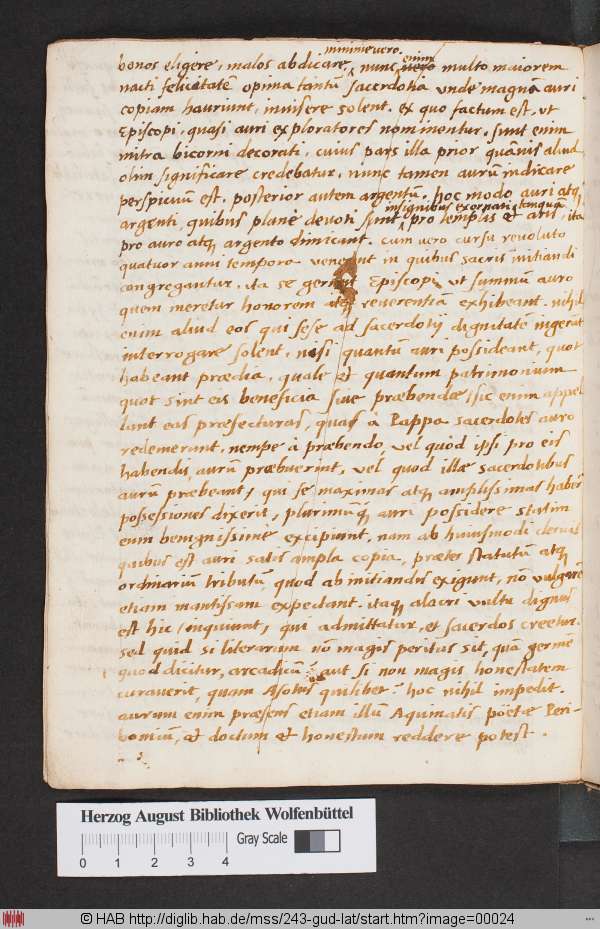 minime vero. enim
bonos eligere, malos abdicare, nunc vero multo maiorem
nacti felicitatē opima tantū sacerdotia unde magnā auri
copiam hauriunt, invisere solent. ex quo factum est, ut
Episcopi, quasi auri exploratores nominentur. sunt enim
mitra bicorni decorati, cuius pars illa prior quāvis aliud
olim significare credebatur, nunc tamen aurū indicare
perspicuum est, posterior autem argentū. hoc modo auri atq,
insignibus exornati tanquā
argenti, quibus planè devoti sunt pro templis et aris, ita
pro auro atq, argento dimicant. cum vero cursu revoluto
quatuor anni tempora venerint in quibus sacris initiandi
congregantur, ita se gerunt Episcopi, ut summū auro
quem meretur honorem atq, reverentiā exhibeant. nihil
enim aliud eos qui sese ad sacerdotij dignitatē ingerūt
interrogare solent, nisi quantū auri possideant, quot
habeant prædia, quale et quantum patrimonium
quot sint eis beneficia sive præbendæ (sic enim appel
lant eas præfecturas, quas à Pappa sacerdotes auro
redemerunt, nempe à præbendo, vel quòd ipsi pro eis
habendis aurū præbuerint, vel quod illæ sacerdotibus
aurū præbeant, qui se maximas atq, amplissimas habere
possessiones dixerit, plurimūq, auri possidere statim
eum benignissimè excipiunt, nam ab huiusmodi
quibus est auri satis ampla copia, præter statutū atq,
ordinariūm tributū, quod ab initiandis exigunt, nō vulgarē
etiam mantissam expectant. itaq, alacri vultu dignus
est hic (inquiunt, qui admittatur, et sacerdos creetur.
sed quid si literarum nō magis peritus sit, quā germē
quod dicitur, arcadicū: aut si non magis honestatem
curaverit, quam Asotus quilibet? hoc nihil impedit.
aurum enim præsens etiam illū Aquinatis pöetæ Peri-
bomiū, et doctum et honestum reddere potest.
Herzog August Bibliothek Wolfenbüttel
Gray Scale
0 1 2 3 4
© HAB http://diglib.hab.de/mss/243-gud-lat/start.htm?image=00024